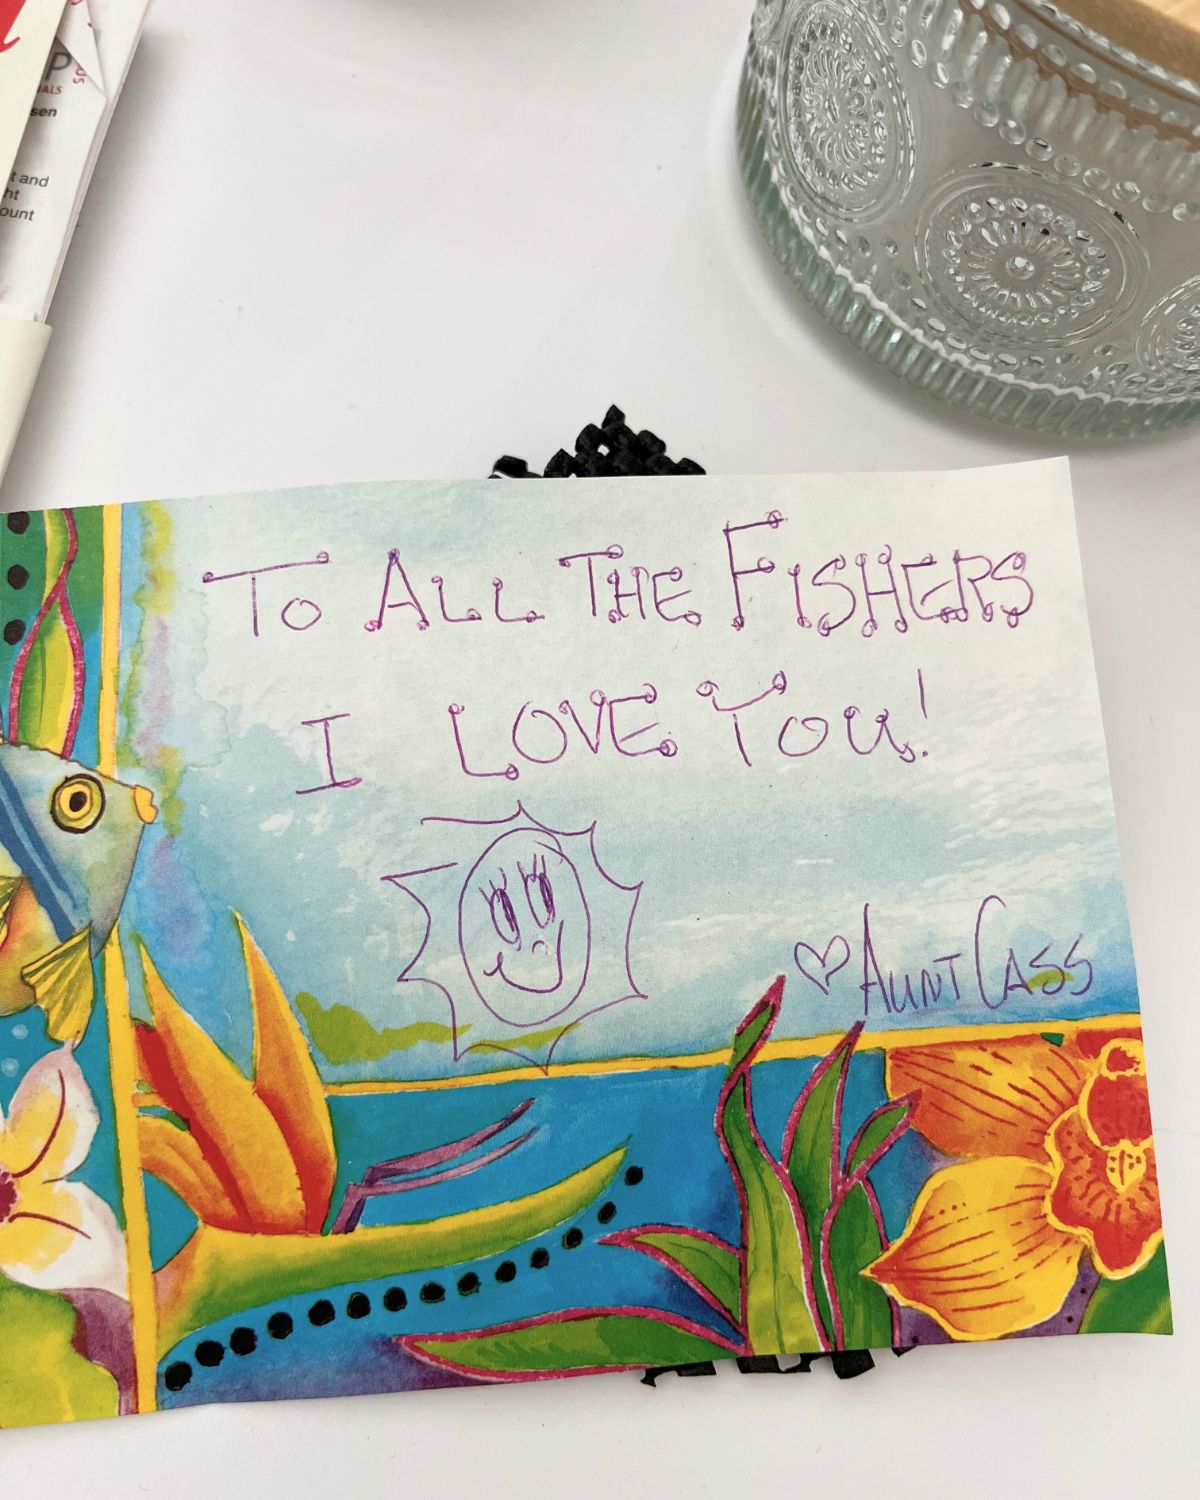 P
US
IALS
sen
t and
ht
ount
TO ALL THE FISHERS
I LOVE YOU!
♡ AUNT CASS